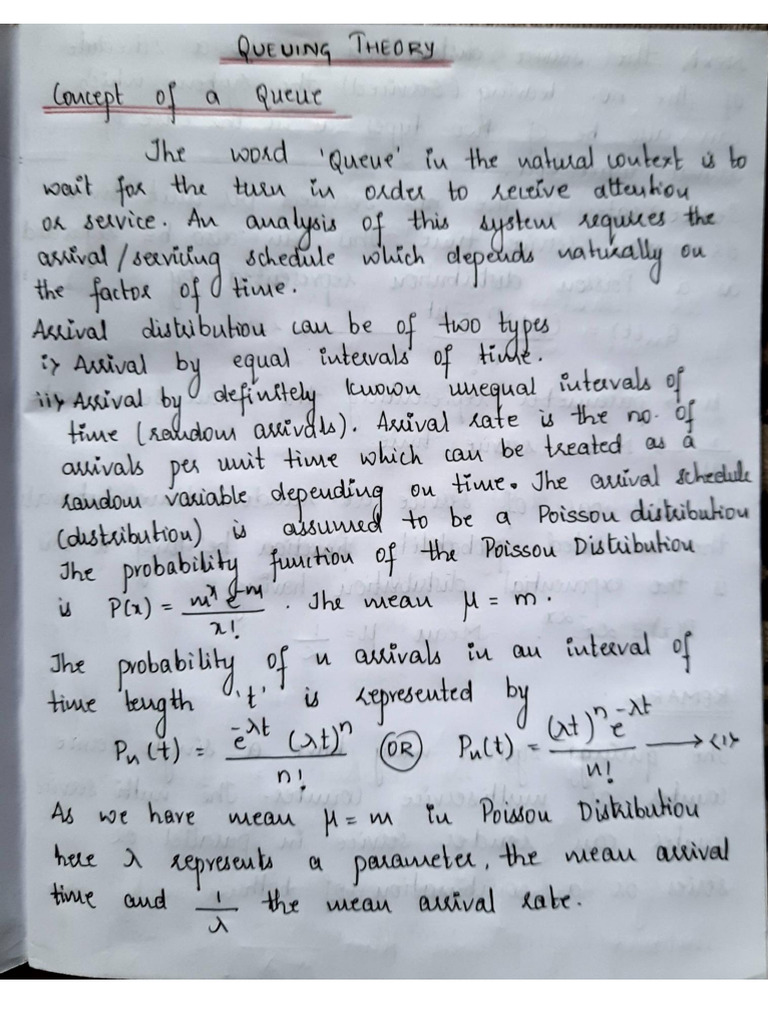 QUEUING THEORY
Concept of a Queue
The word 'Queue' in the natural context is to
wait for the turn in order to receive attention
or service. An analysis of this system requires the
arrival/servicing schedule which depends naturally on
the factor of time.
Arrival distribution can be of two types
i> Arrival by equal intervals of time.
ii> Arrival by definitely known unequal intervals of
time (random arrivals). Arrival rate is the no. of
arrivals per unit time which can be treated as a
random variable depending on time. The arrival schedule
(distribution) is assumed to be a Poisson distribution
The probability function of the Poisson Distribution
is P(x) = m^x e^-m / x! . The mean μ = m.
The probability of n arrivals in an interval of
time length 't' is represented by
Pn(t) = e^-λt (λt)^n / n! (OR) Pn(t) = (λt)^n e^-λt / n! → <1>
As we have mean μ = m in Poisson Distribution
here λ represents a parameter, the mean arrival
time and 1/λ the mean arrival rate.